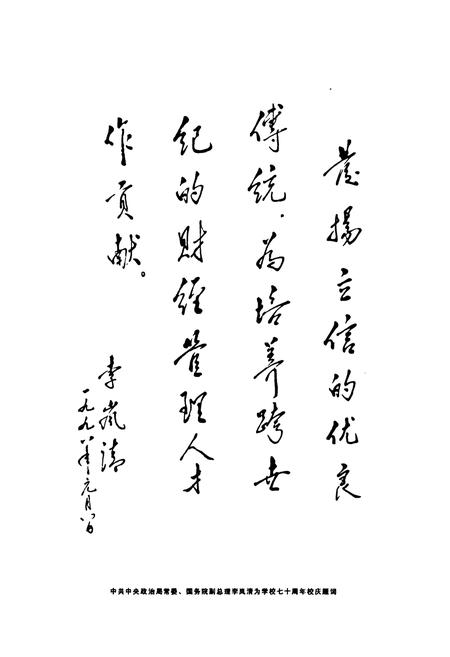 發揚立信的优良
傳統，為培养跨世
紀的財經管理人才
作貢献。
李嵐清
一九九八年元月八日
中共中央政治局常委、国务院副总理李岚清为学校七十周年校庆题词